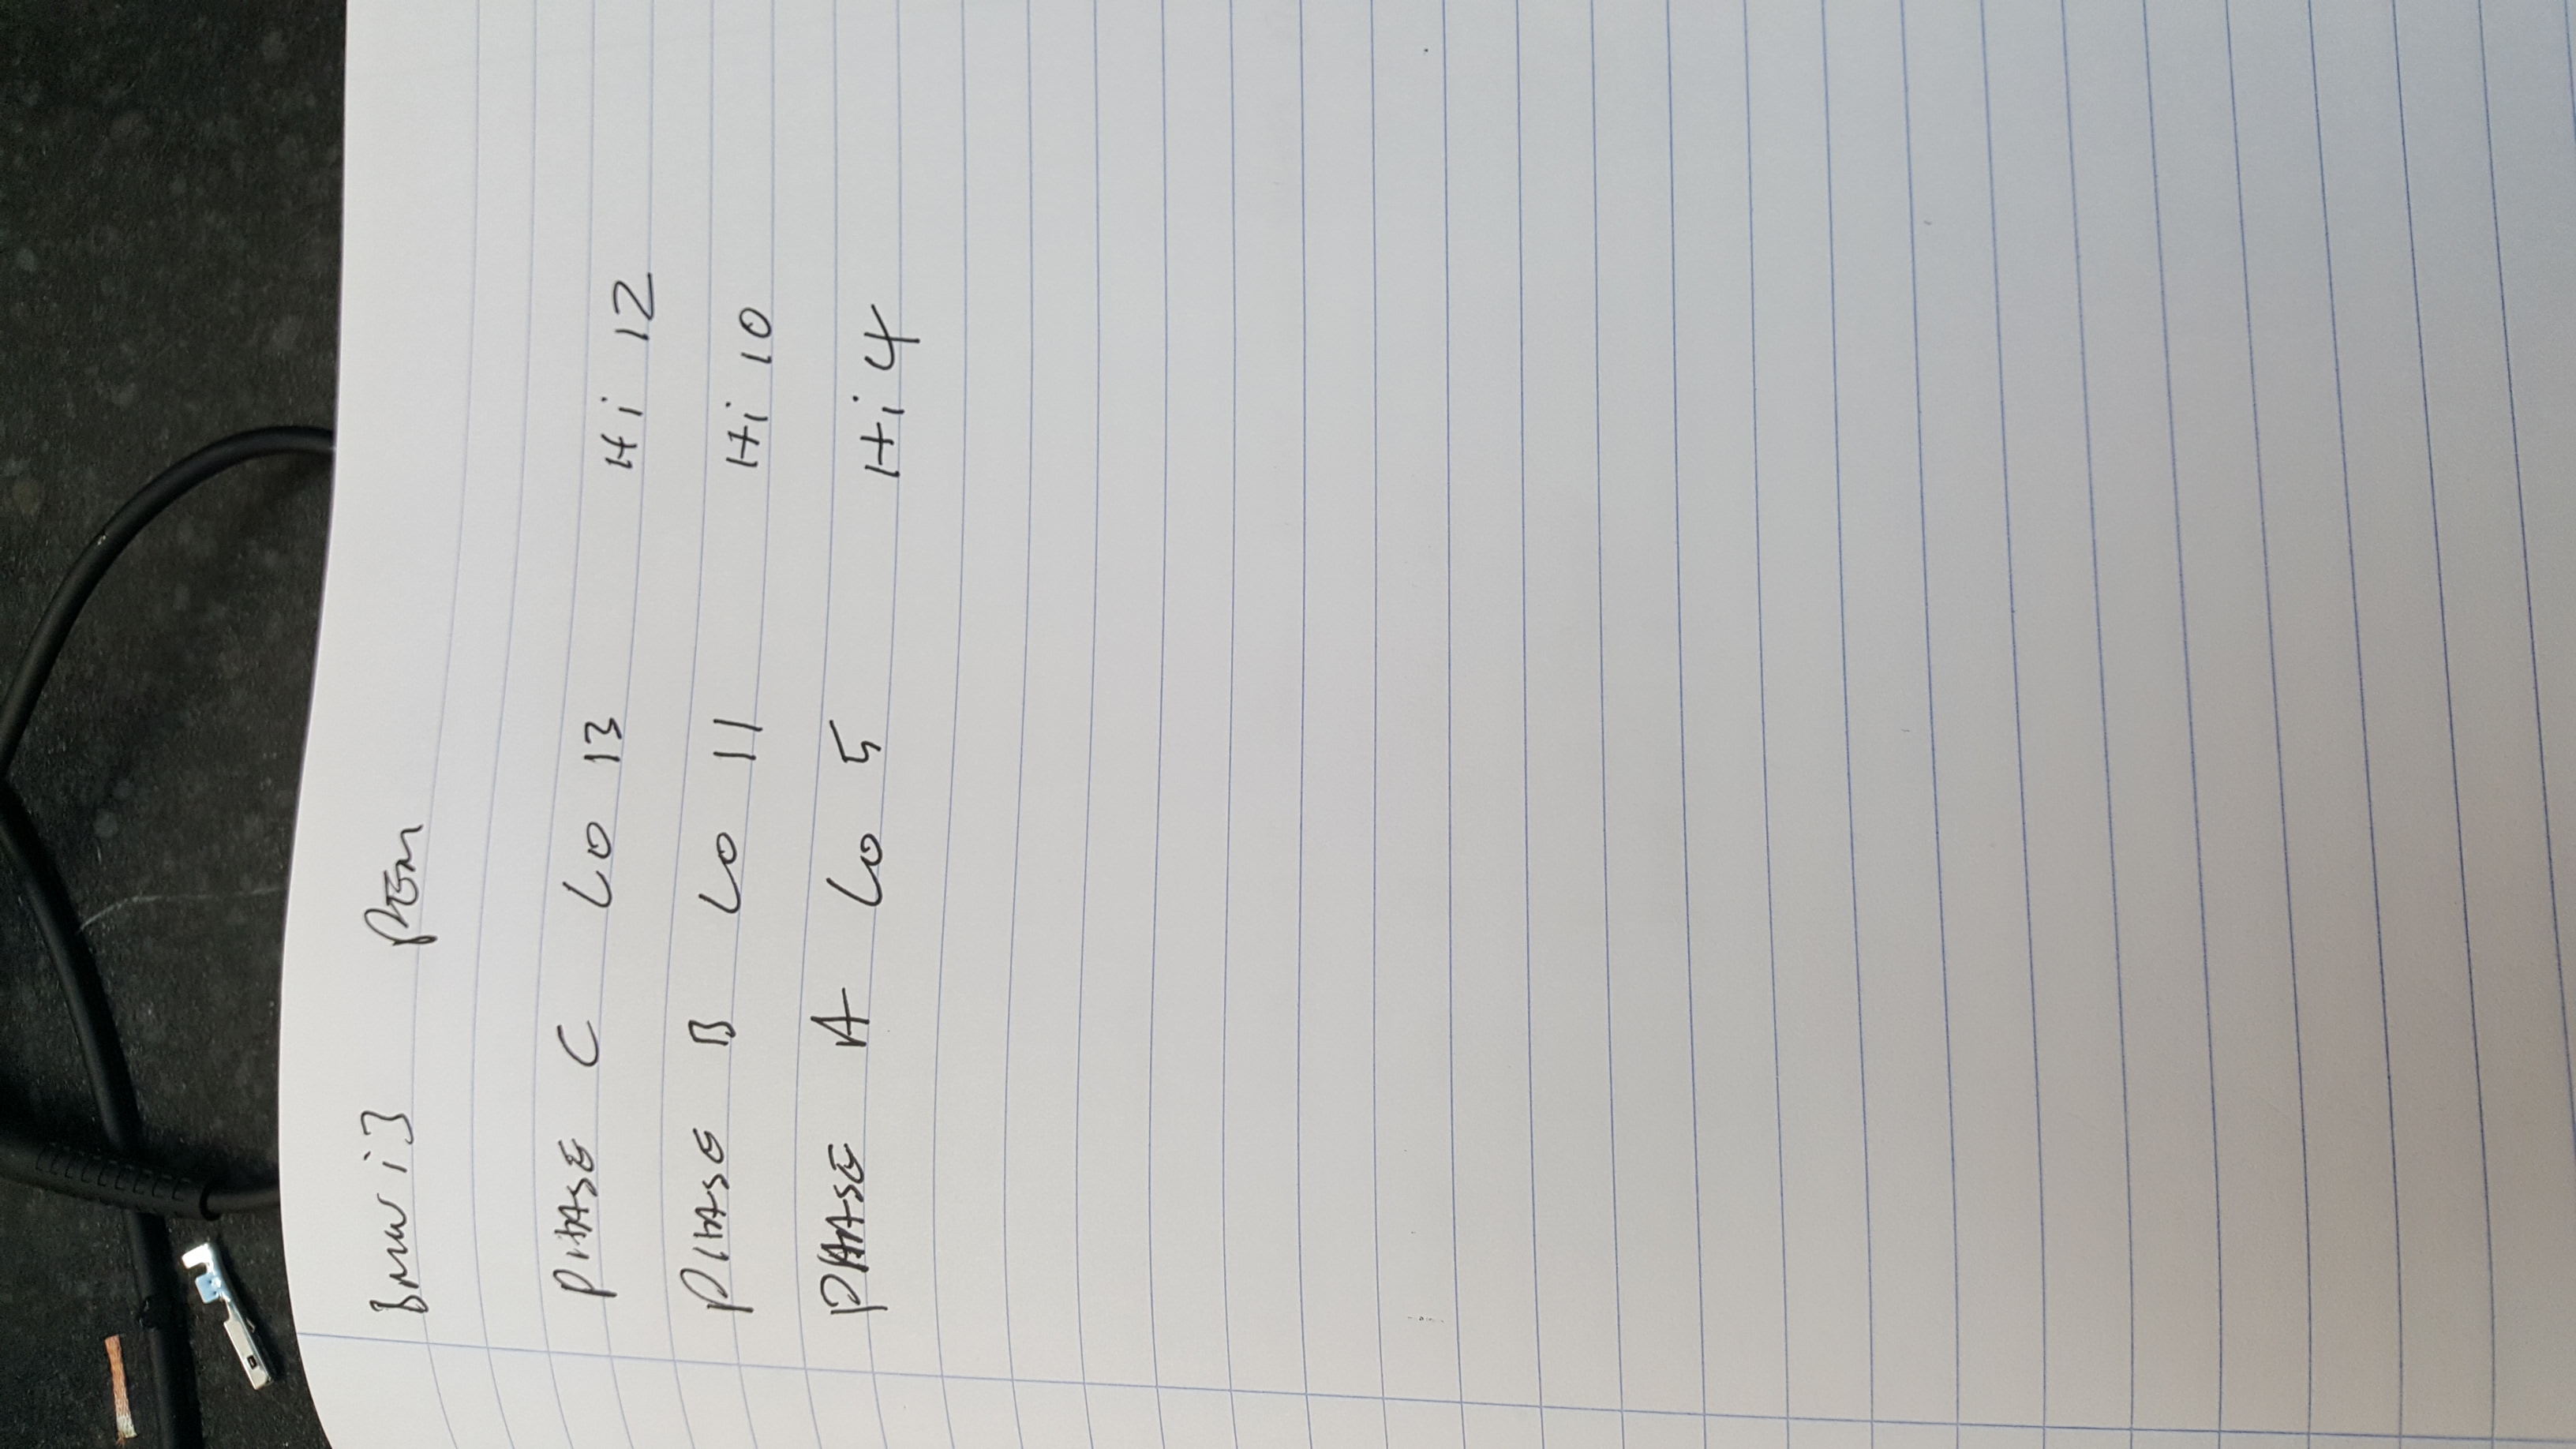 Bmw i3 PEM
PHASE C LO 13 Hi 12
PHASE B LO 11 Hi 10
PHASE A LO 5 Hi 4